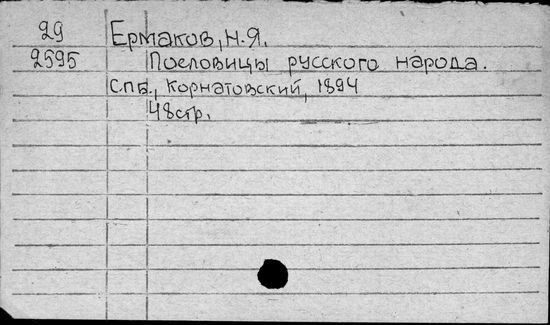 29 Ермаков, Н.Я.
2595 Пословицы русского народа.
С.П.Б., Корнатовский, 1894
48стр.